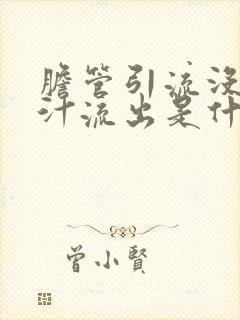 胆管引流没
汁流出是什
曾小賢